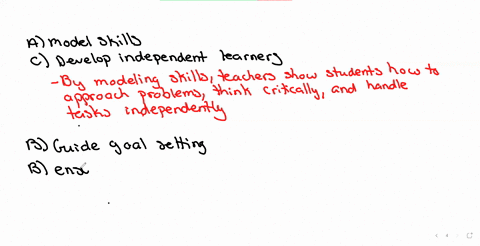 A) Model skills
C) Develop independent learners
- By modeling skills, teachers show students how to
approach problems, think critically, and handle
tasks independently
B) Guide goal setting
B) en